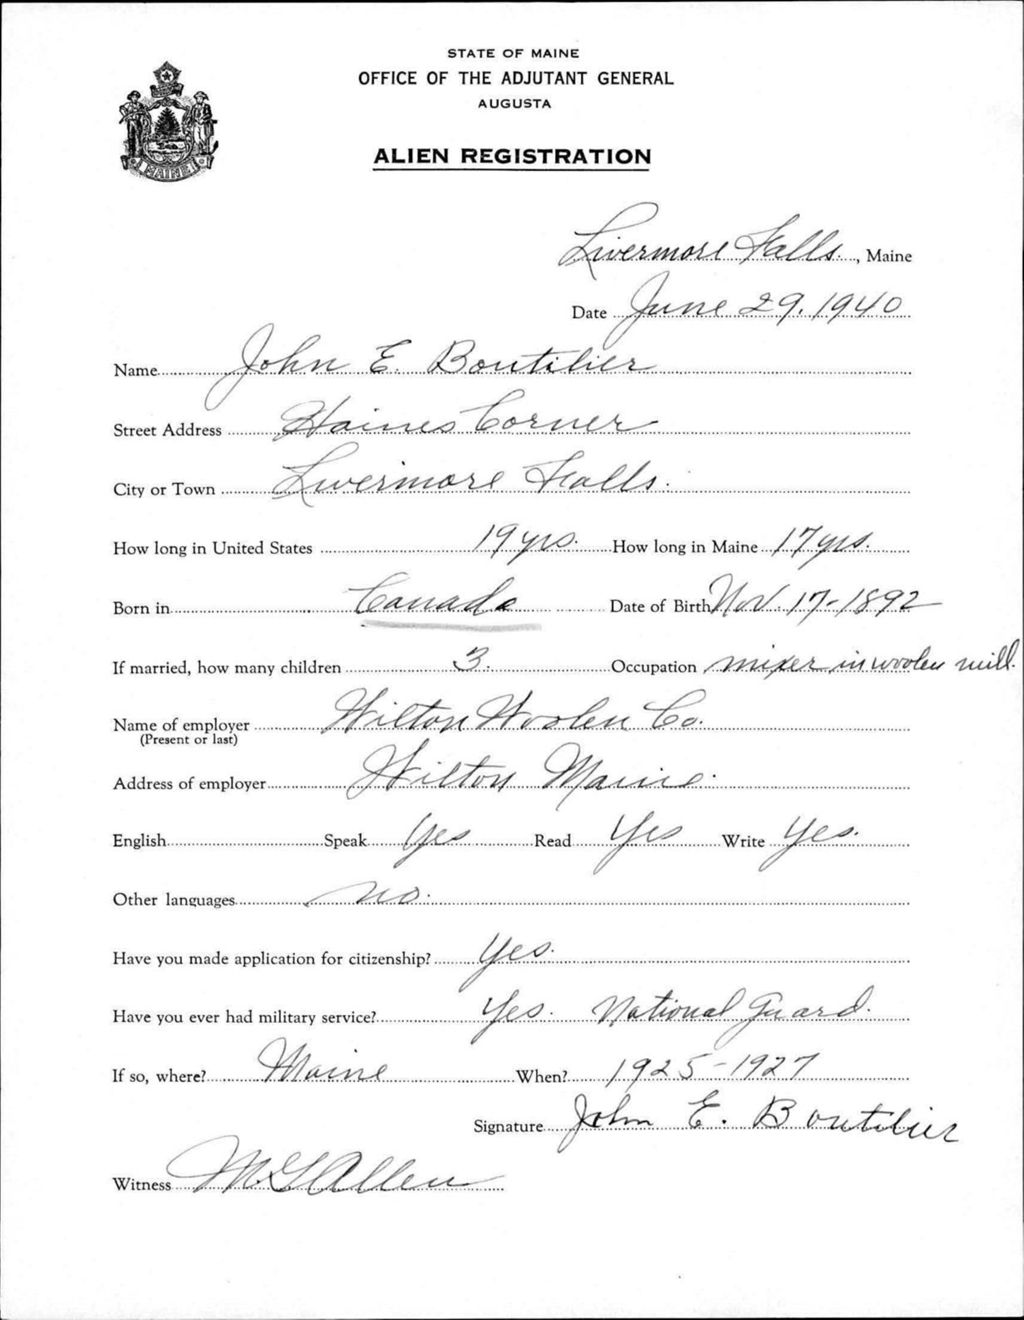 STATE OF MAINE
OFFICE OF THE ADJUTANT GENERAL
AUGUSTA
ALIEN REGISTRATION
MAINE
Livermore Falls., Maine
Date June 29, 1940
Name John E. Boutilier
Street Address Haines Corner
City or Town Livermore Falls.
How long in United States 19 yrs. How long in Maine 17 yrs.
Born in Canada Date of Birth Nov. 17-1892
If married, how many children 3. Occupation mixer in woolen mill.
Name of employer Wilton Woolen Co.
(Present or last)
Address of employer Wilton Maine.
English Speak Yes Read Yes Write Yes.
Other languages no.
Have you made application for citizenship? Yes.
Have you ever had military service? Yes. National Guard.
If so, where? Maine When? 1925-1927
Signature John E. Boutilier
Witness Allen